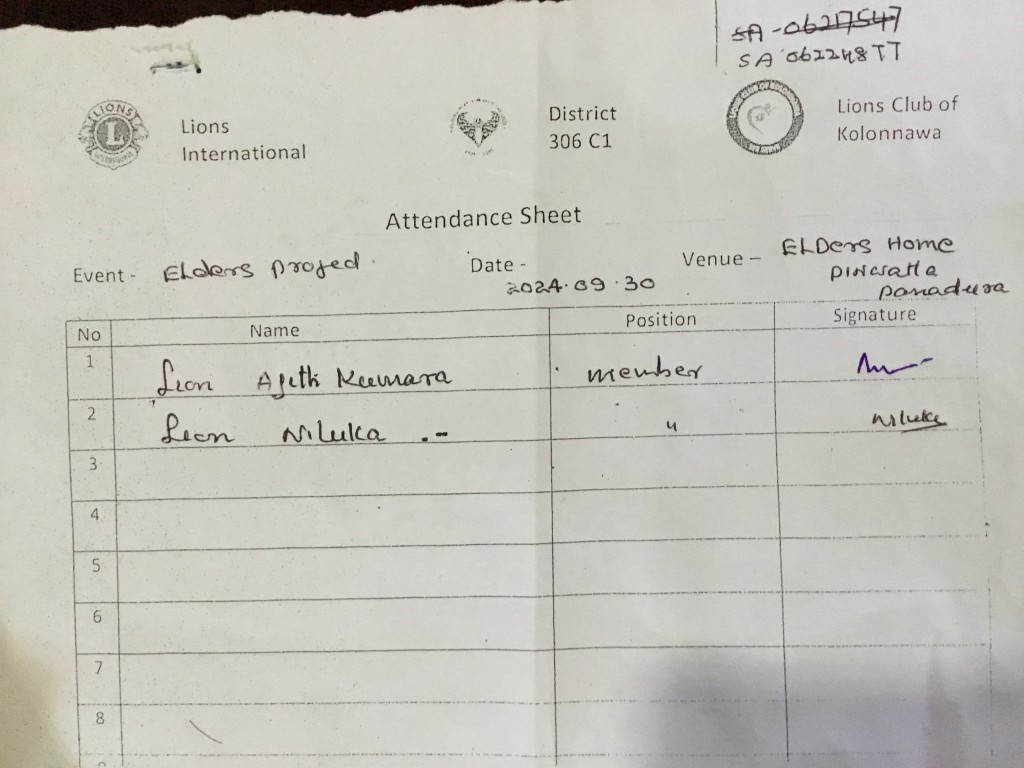 SA-06217547
SA 062248TT
LIONS
L
Lions
International
District
306 C1
Lions Club of
Kolonnawa
Attendance Sheet
Event - Elders project.
Date -
2024.09.30
Venue - ELDers Home
Pinwatta
Panadura
No Name Position Signature
1 Lion Ajith Kumara member
2 Lion Niluka .- " Niluka
3
4
5
6
7
8